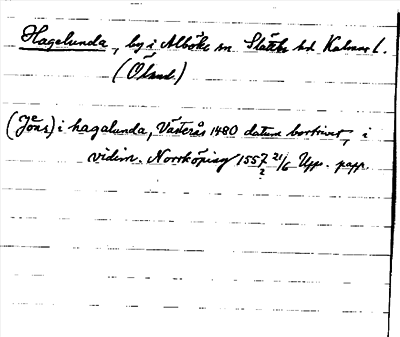 Hagelunda, by i Alböke sn. Slättbo hd Kalmar l.
(Öland.)
(Jöns) i hagalunda, Västerås 1480 datum bortrivet, i
vidim. Norrköping 1557 21/6 Upps. papp.
2